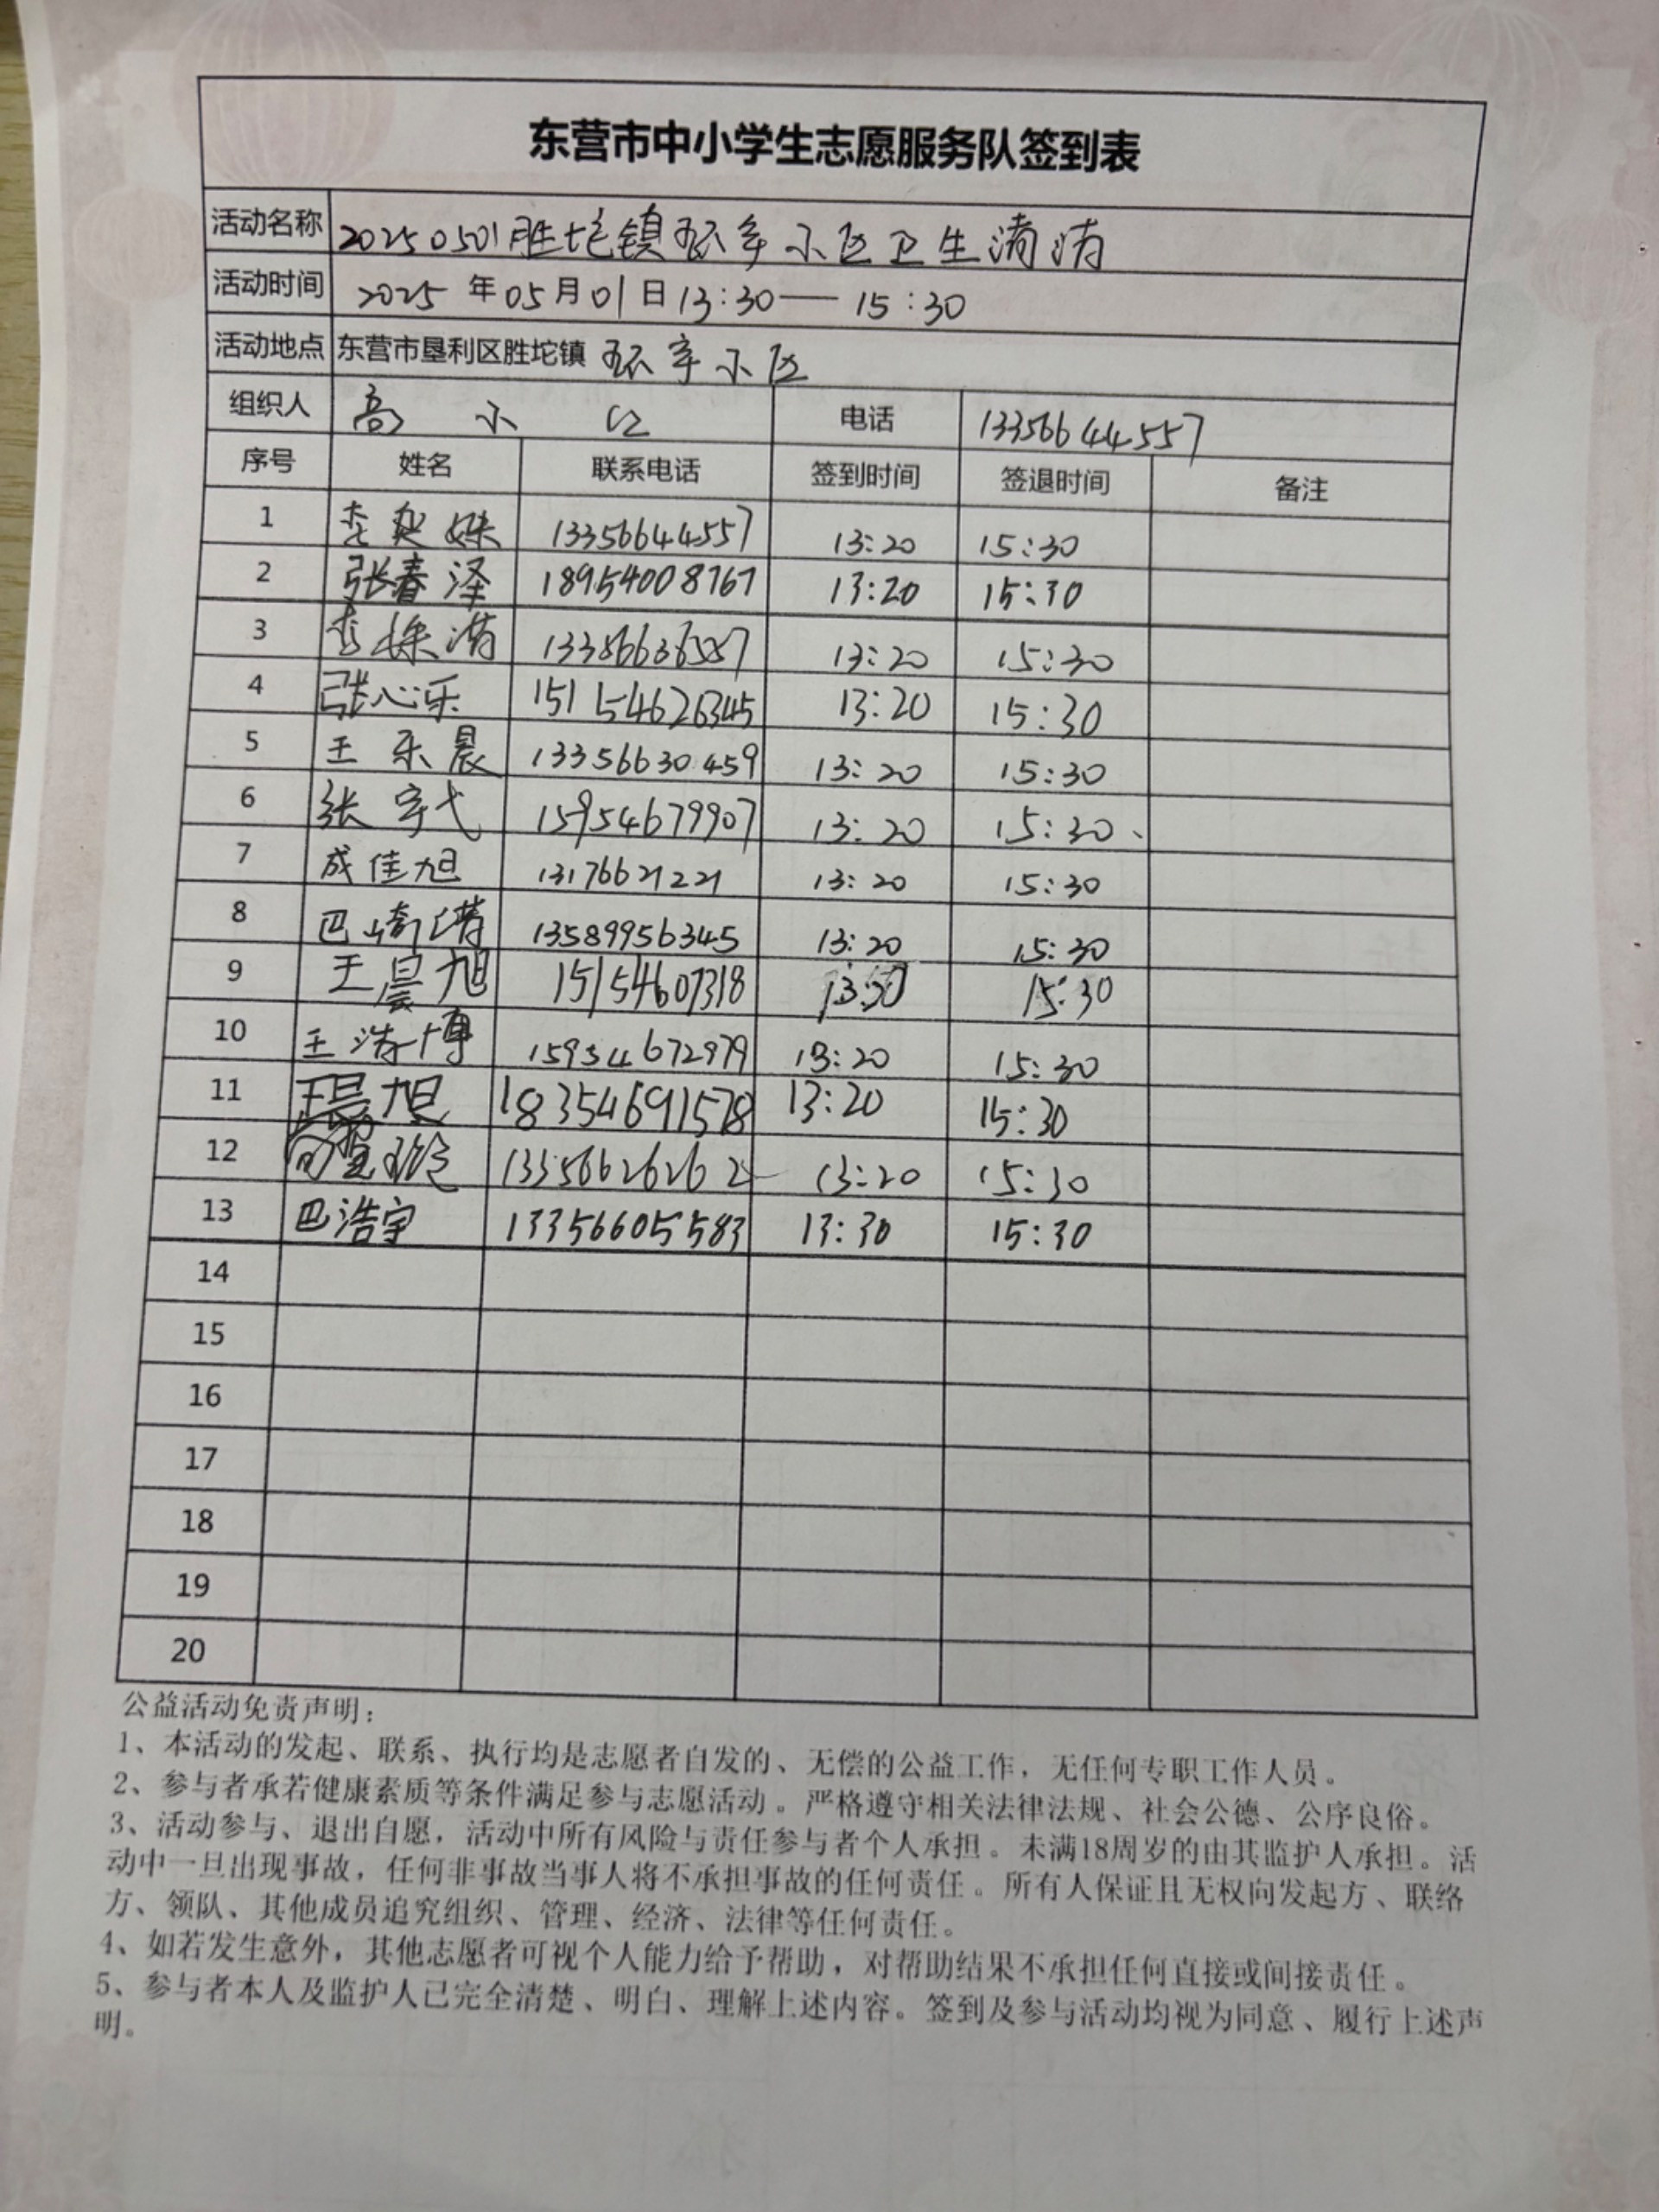 东营市中小学生志愿服务队签到表
活动名称 20250501胜坨镇 小区卫生清
活动时间 2025年05月01日13:30—15:30
活动地点 东营市垦利区胜坨镇 小区
组织人 高小 电话 13356644557
序号 姓名 联系电话 签到时间 签退时间 备注
1 李 姝 13356644557 13:20 15:30
2 张春泽 18954008767 13:20 15:30
3 李 13:20 15:30
4 张心乐 151 54626345 13:20 15:30
5 王乐晨 13356630459 13:20 15:30
6 张宇弋 15954679907 13:20 15:30
7 成佳旭 13176621221 13:20 15:30
8 巴 13589956345 13:20 15:30
9 王晨旭 15154607318 15:30
10 王浩博 15954672979 13:20 15:30
11 王晨旭 18354691578 13:20 15:30
12 13356626262 13:20 15:30
13 巴浩宇 13356605583 13:30 15:30
14
15
16
17
18
19
20
公益活动免责声明：
1、本活动的发起、联系、执行均是志愿者自发的、无偿的公益工作，无任何专职工作人员。
2、参与者承若健康素质等条件满足参与志愿活动。严格遵守相关法律法规、社会公德、公序良俗。
3、活动参与、退出自愿，活动中所有风险与责任参与者个人承担。未满18周岁的由其监护人承担。活
动中一旦出现事故，任何非事故当事人将不承担事故的任何责任。所有人保证且无权向发起方、联络
方、领队、其他成员追究组织、管理、经济、法律等任何责任。
4、如若发生意外，其他志愿者可视个人能力给予帮助，对帮助结果不承担任何直接或间接责任。
5、参与者本人及监护人已完全清楚、明白、理解上述内容。签到及参与活动均视为同意、履行上述声
明。